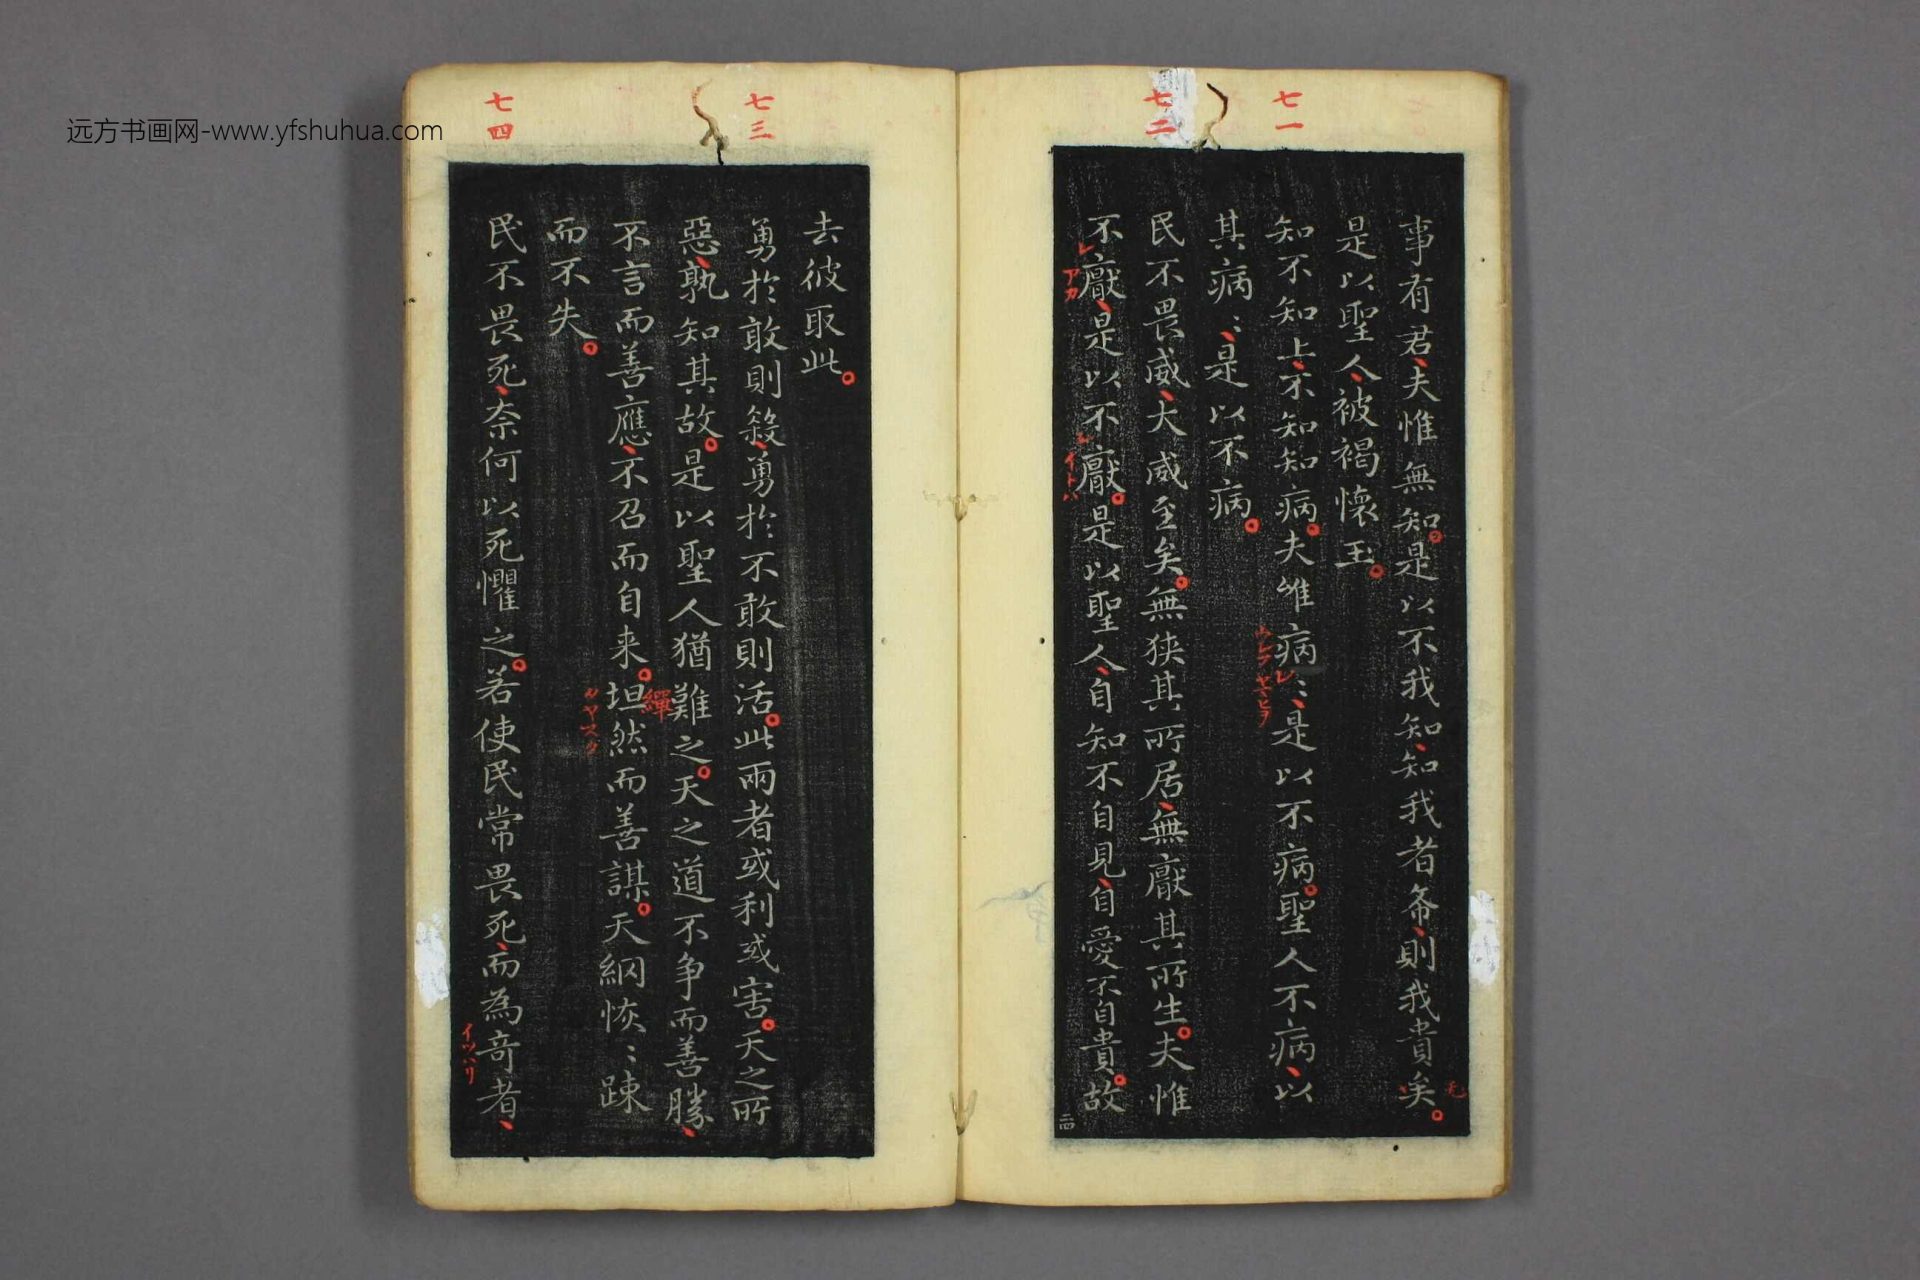 远方书画网-www.yfshuhua.com
七一
七二
事有君夫惟無知是以不我知知我者希則我貴矣
是以聖人被褐懷玉
知不知上不知知病夫唯病〻是以不病聖人不病以
其病〻是以不病
民不畏威大威至矣無狹其所居無厭其所生夫惟
不厭是以不厭是以聖人自知不自見自愛不自貴故
アカ
イトハ
二四
七三
七四
去彼取此
勇於敢則殺勇於不敢則活此兩者或利或害天之所
惡孰知其故是以聖人猶難之天之道不争而善勝
不言而善應不召而自来坦然而善謀天網恢〻踈
繟
而不失
民不畏死奈何以死懼之若使民常畏死而為奇者
イツハリ